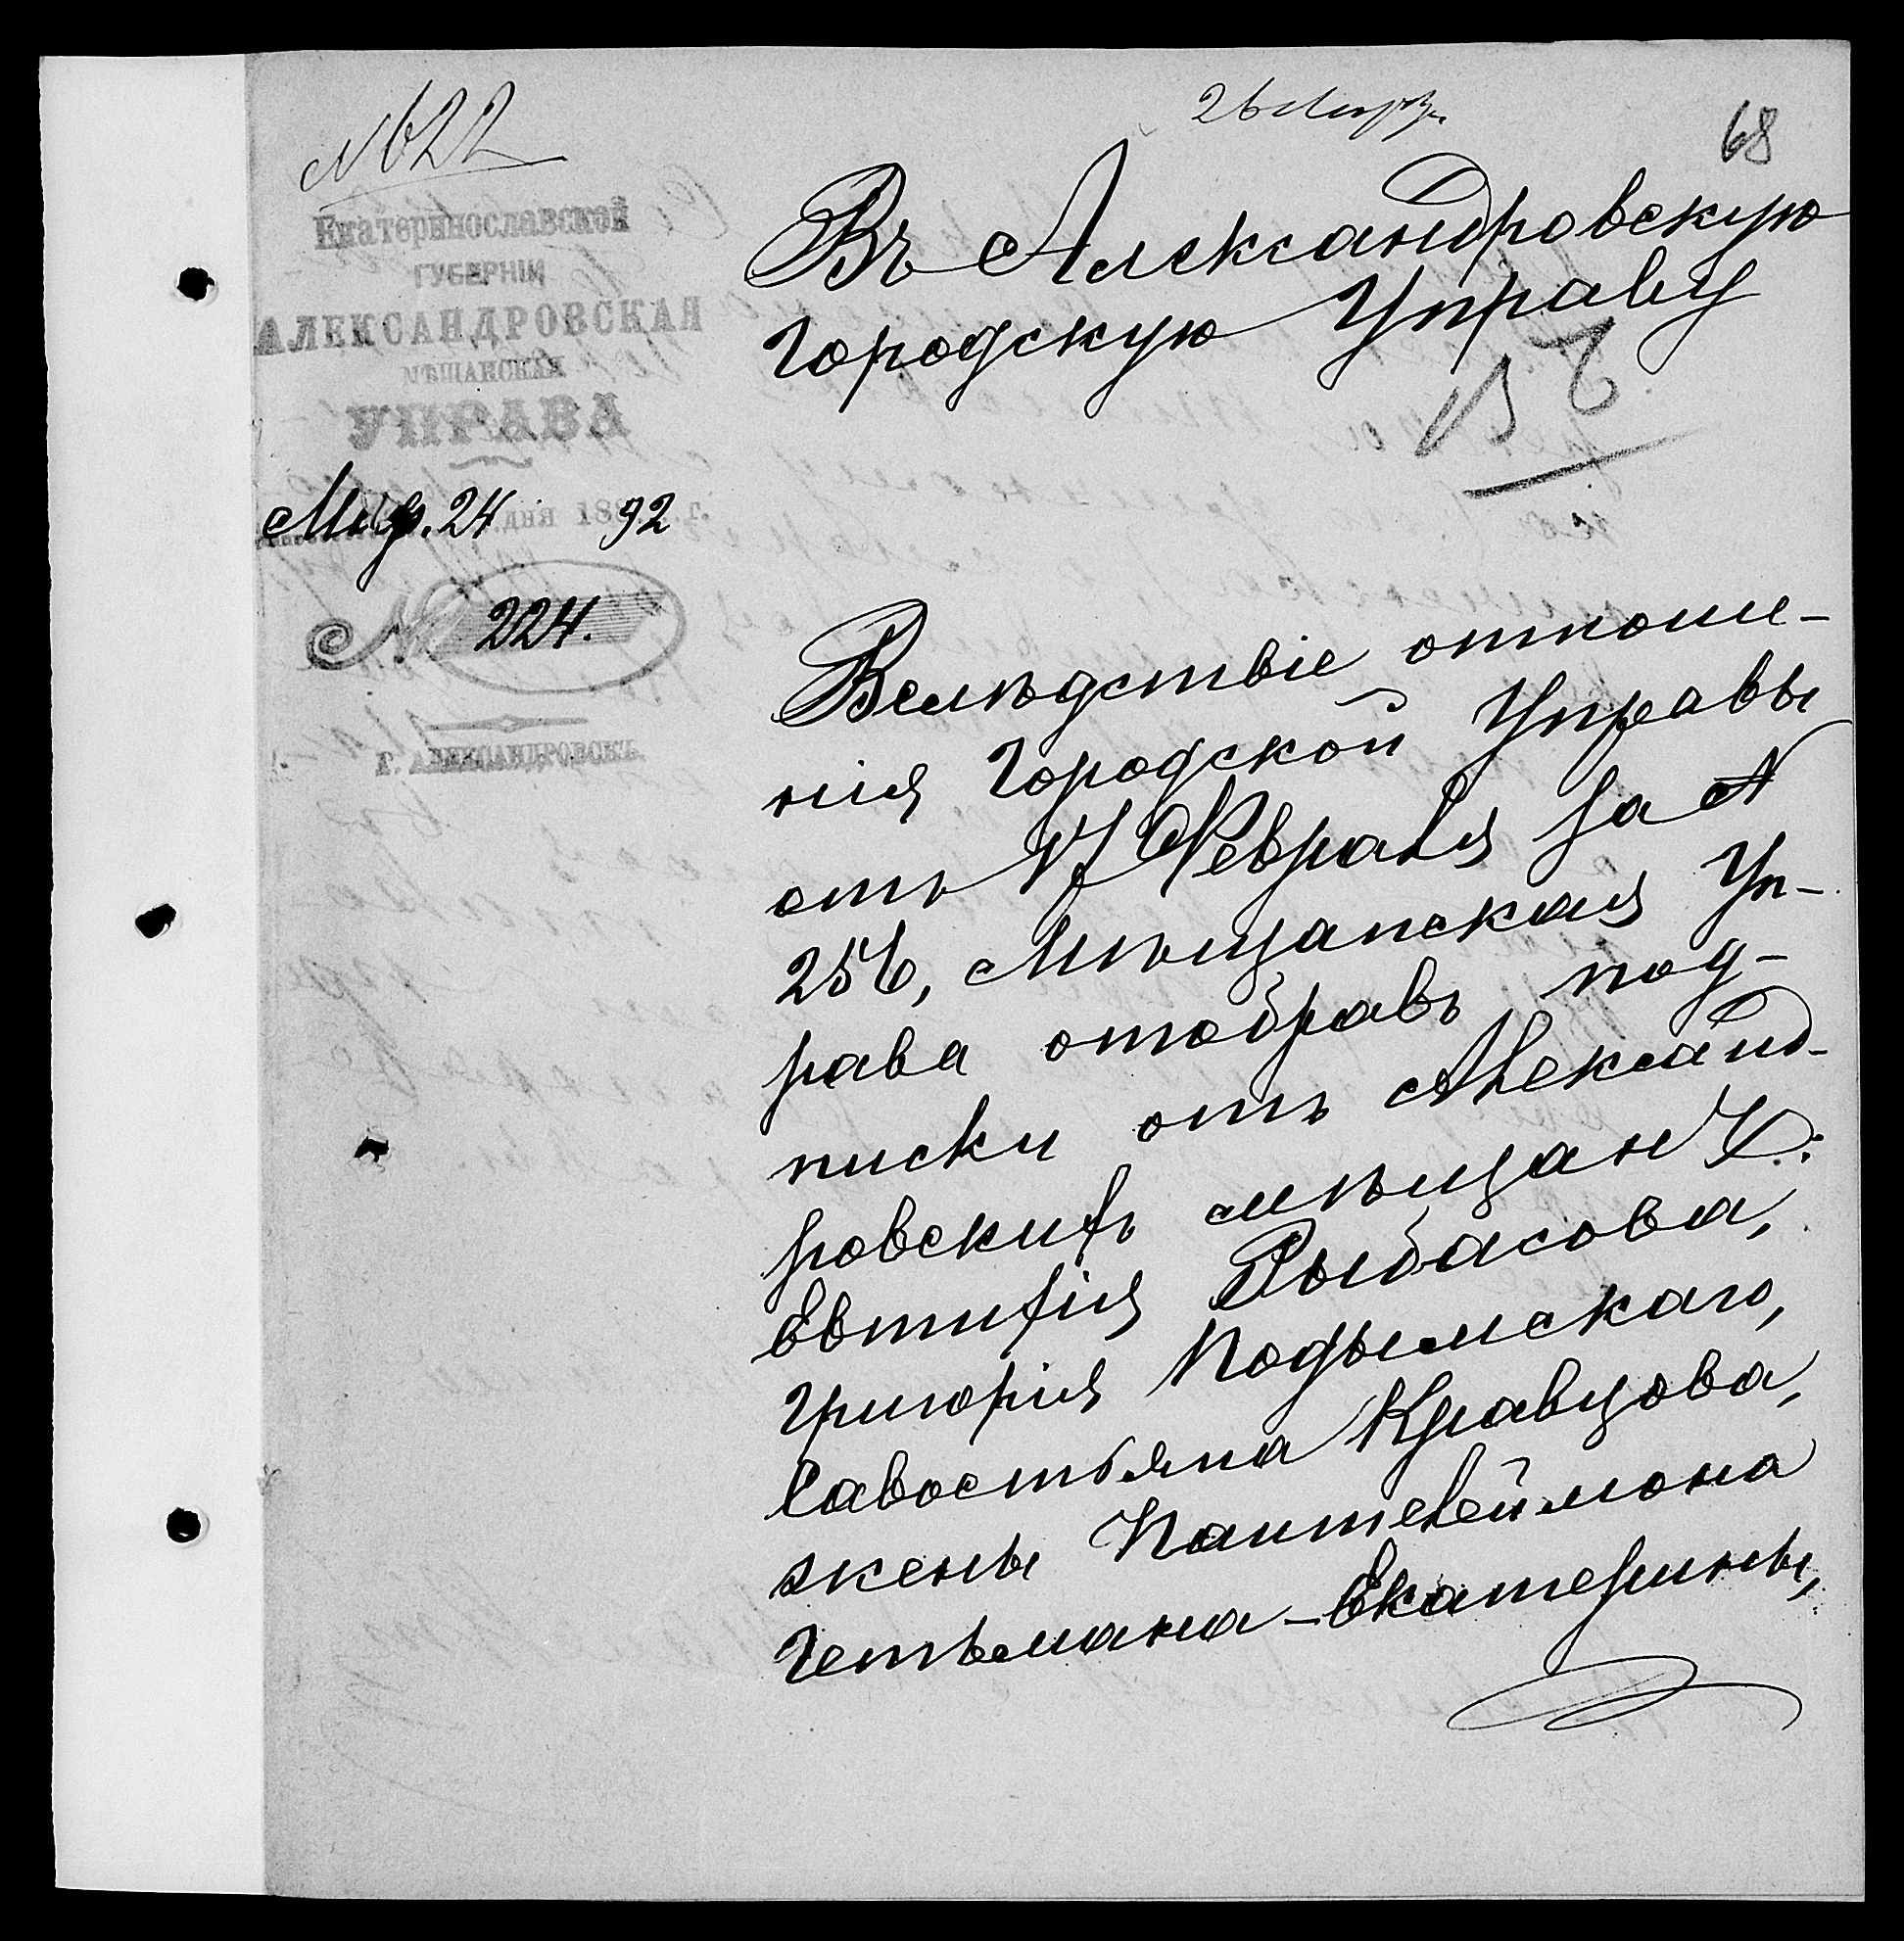 № 622
26 Мар.
68
Екатеринославской
ГУБЕРНІИ
АЛЕКСАНДРОВСКАЯ
МѢЩАНСКАЯ
УПРАВА
Мар. 24 дня 1892 г.
№ 224.
Г. АЛЕКСАНДРОВСКЪ.
Въ Александровскую
Городскую Управу
Вслѣдствіе отноше-
нія Городской Управы
отъ 17 Февраля за №
256, Мѣщанская Уп-
рава отобравъ под-
писки отъ Александ-
ровскихъ мѣщанъ:
Евтихія Рыбасова,
Григорія Подымскаго,
Савостьяна Кравцова,
жены Пантелеймона
Гетьмана - Екатерины,